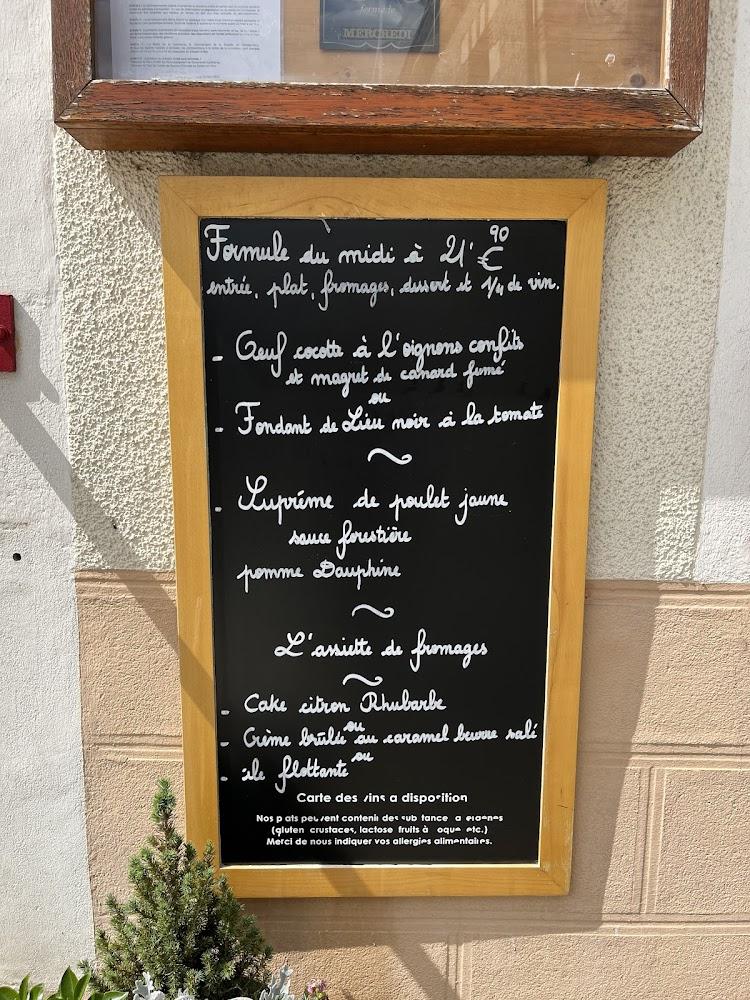 fermée
MERCREDI
Formule du midi à 21'€90
entrée, plat, fromages, dessert et 1/4 de vin.
- Oeuf cocotte à l'oignons confits
et magret de canard fumé
ou
- Fondant de Lieu noir à la tomate
~
- Suprême de poulet jaune
sauce forestière
pomme Dauphine
~
L'assiette de fromages
~
- Cake citron Rhubarbe
ou
- Crème brûlée au caramel beurre salé
ou
- île flottante
Carte des ins a disposition
Nos p ats peuvent contenir des sub tance a e gènes
(gluten crustaces, lactose fruits à oque etc.)
Merci de nous indiquer vos allergies alimentaires.